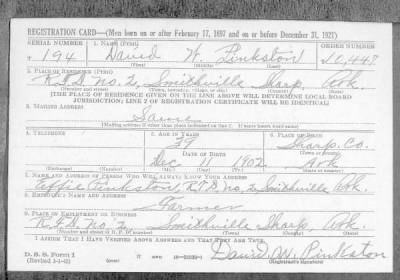 REGISTRATION CARD—(Men born on or after February 17, 1897 and on or before December 31, 1921)
SERIAL NUMBER 1. NAME (Print) ORDER NUMBER
194 David W. Pinkston 10,447
(First) (Middle) (Last)
2. PLACE OF RESIDENCE (Print)
R.F.D. No. 2, Smithville Sharp, Ark.
(Number and street) (Town, township, village, or city) (County) (State)
[THE PLACE OF RESIDENCE GIVEN ON THE LINE ABOVE WILL DETERMINE LOCAL BOARD
JURISDICTION; LINE 2 OF REGISTRATION CERTIFICATE WILL BE IDENTICAL]
3. MAILING ADDRESS
Same
[Mailing address if other than place indicated on line 2. If same insert word same]
4. TELEPHONE 5. AGE IN YEARS 6. PLACE OF BIRTH
39 Sharp, Co.
DATE OF BIRTH (Town or county)
Dec 11 1902 Ark
(Exchange) (Number) (Mo.) (Day) (Yr.) (State or country)
7. NAME AND ADDRESS OF PERSON WHO WILL ALWAYS KNOW YOUR ADDRESS
Effie Pinkston, R.F.D. no. 2, Smithville Ark.
8. EMPLOYER'S NAME AND ADDRESS
Farmer
9. PLACE OF EMPLOYMENT OR BUSINESS
R.F.D. no. 2 Smithville Sharp, Ark.
(Number and street or R. F. D. number) (Town) (County) (State)
I AFFIRM THAT I HAVE VERIFIED ABOVE ANSWERS AND THAT THEY ARE TRUE.
D. S. S. Form 1 David W. Pinkston
(Revised 1-1-42) (over) (Registrant's signature)